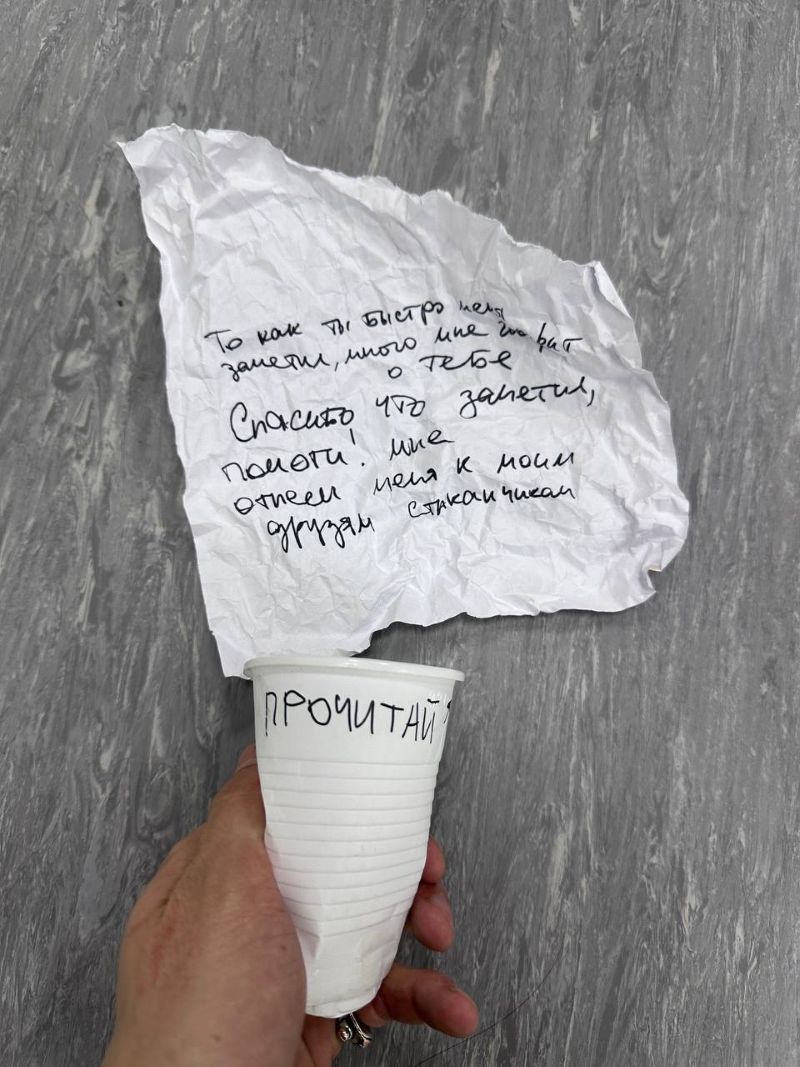 То как ты быстро меня
заметил, много мне говорит
о тебе
Спасибо, что заметил,
помоги! мне
отнеси меня к моим
друзям стаканчикам
ПРОЧИТАЙ